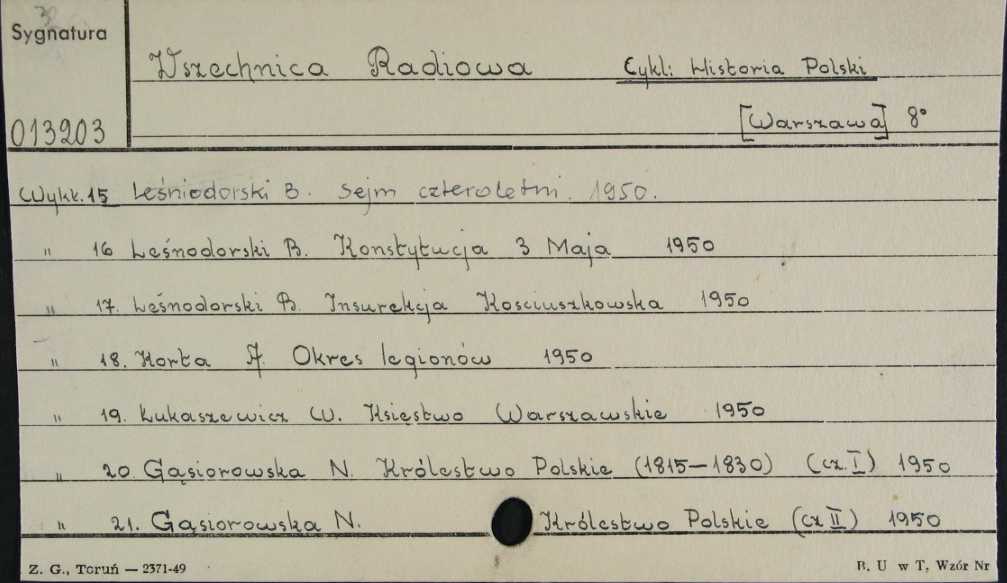 Sygnatura
Wszechnica Radiowa Cykl: Historia Polski
013203 [Warszawa] 8°
Wykł. 15 Leśniodorski B. Sejm czteroletni. 1950.
" 16 Leśnodorski B. Konstytucja 3 Maja 1950
" 17. Leśnodorski B. Insurekcja Kosciuszkowska 1950
" 18. Korta A. Okres legionów 1950
" 19. Łukaszewicz W. Księstwo Warszawskie 1950
" 20. Gąsiorowska N. Królestwo Polskie (1815—1830) (cz. I) 1950
" 21. Gąsiorowska N. Królestwo Polskie (cz II) 1950
Z. G., Toruń — 2371-49 B. U w T. Wzór Nr